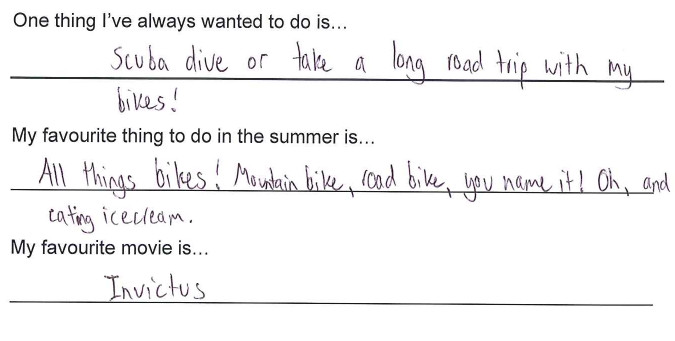 One thing I've always wanted to do is...
Scuba dive or take a long road trip with my
bikes!
My favourite thing to do in the summer is...
All things bikes! Mountain bike, road bike, you name it! Oh, and
eating icecream.
My favourite movie is...
Invictus